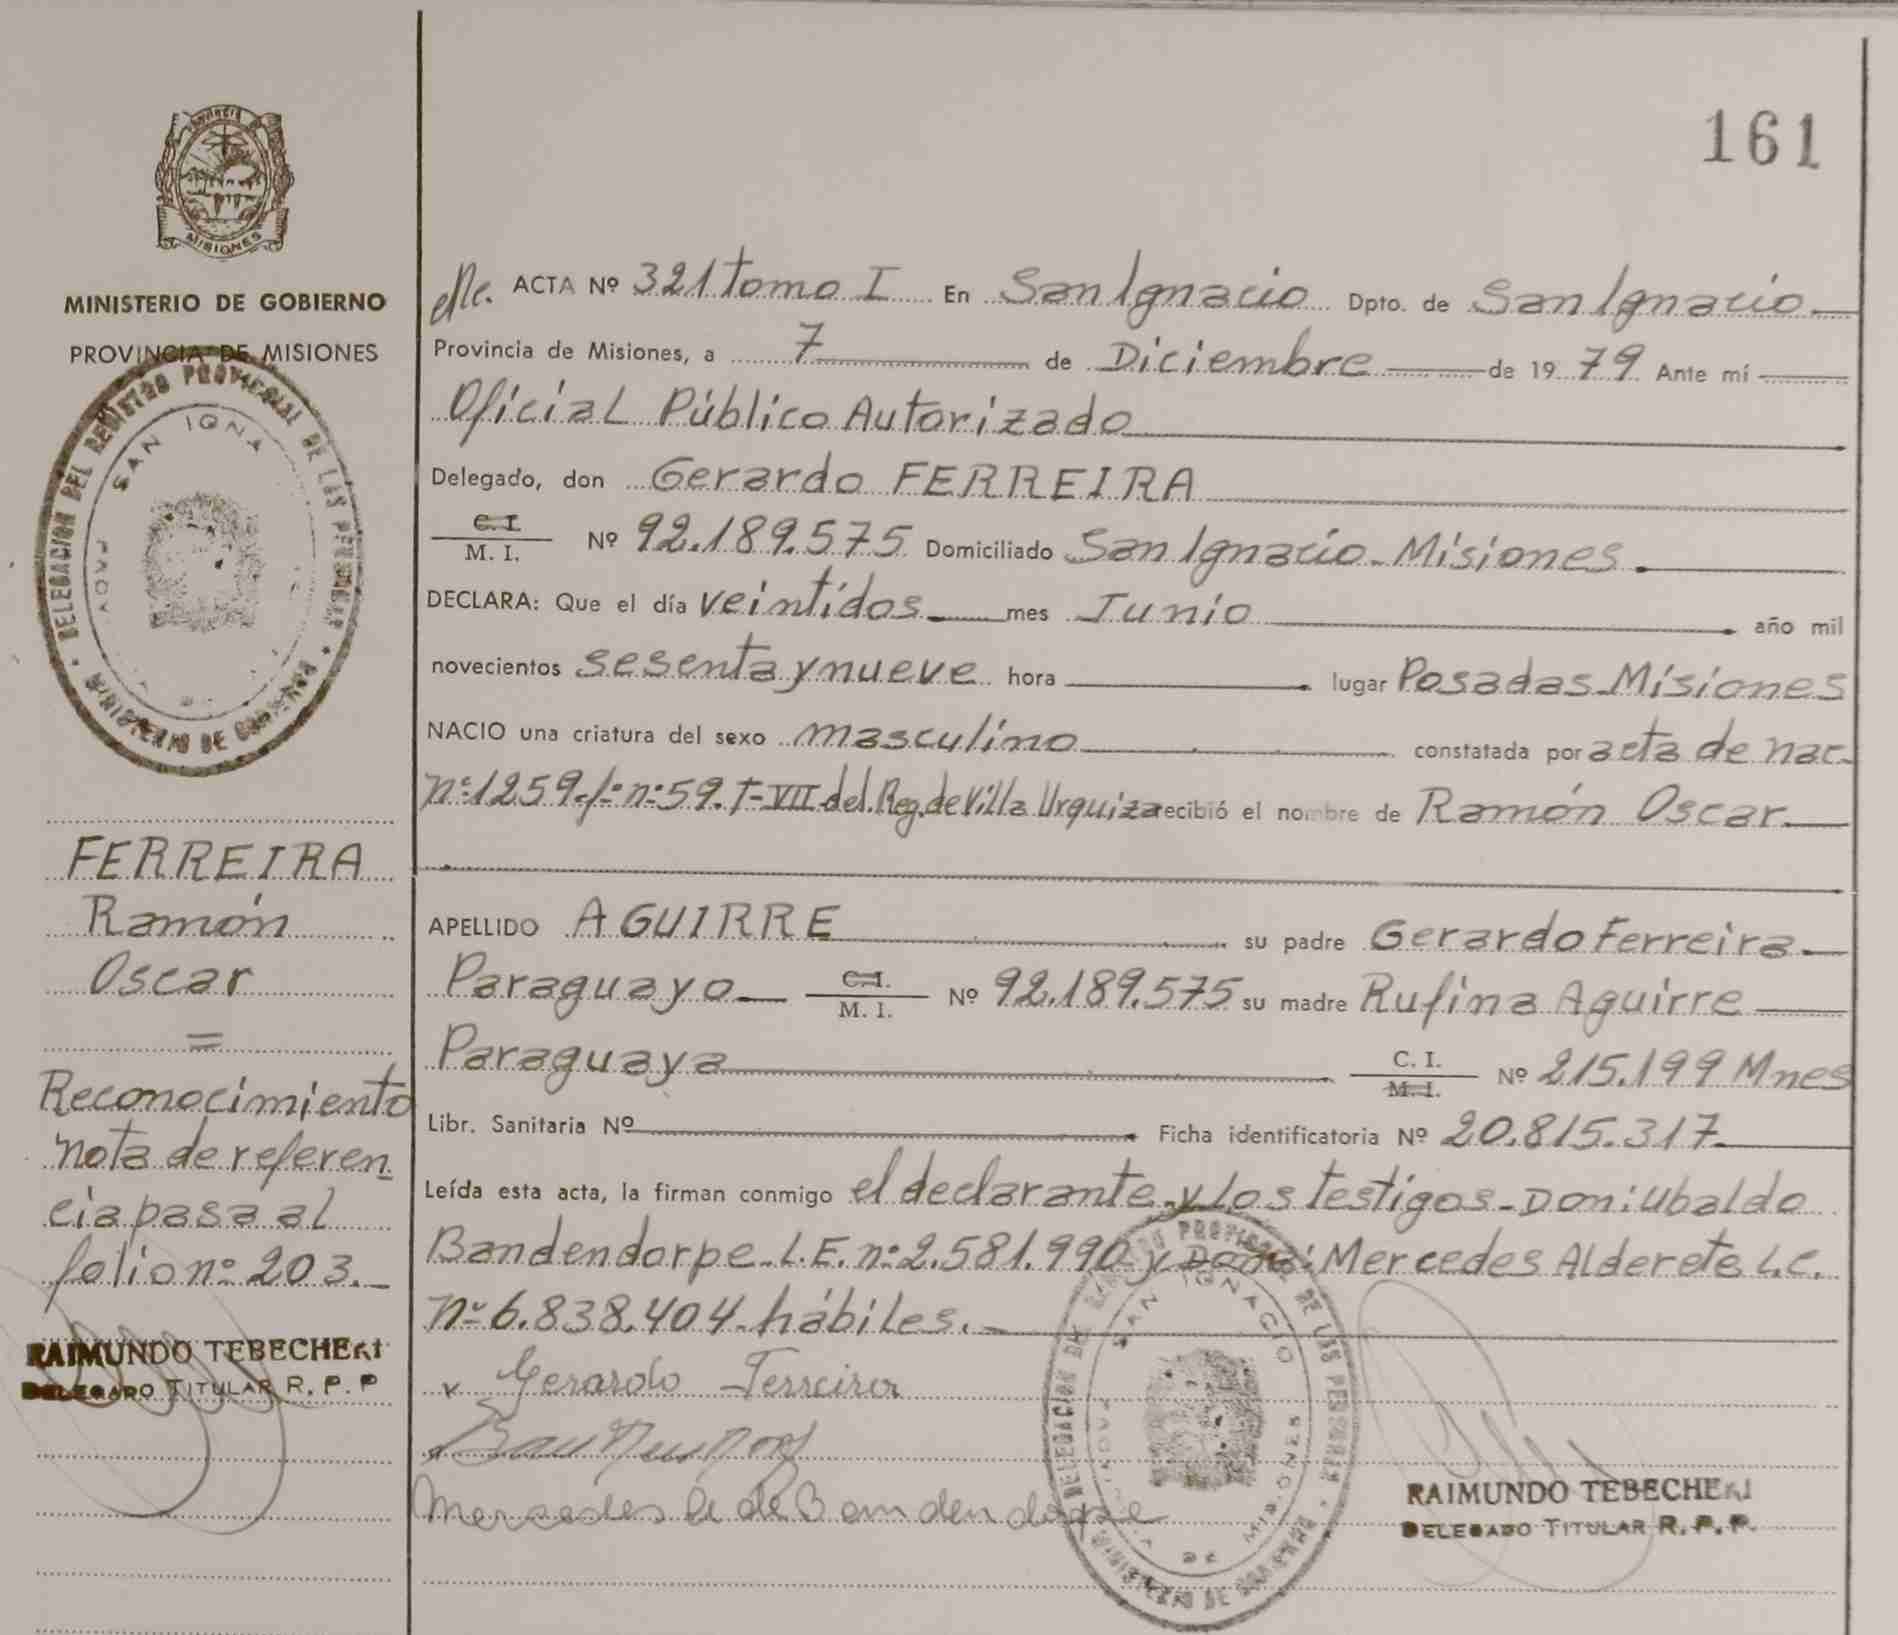 161
MISIONES
MINISTERIO DE GOBIERNO
PROVINCIA DE MISIONES
DELEGACION DEL REGISTRO PROVINCIAL DE LAS PERSONAS
MINISTERIO DE GOBIERNO
SAN IGNA
FERREIRA
Ramón
Oscar
=
Reconocimiento
nota de referen
cia pasa al
folio nº 203.
RAIMUNDO TEBECHERI
DELEGADO TITULAR R. P. P
ACTA Nº 321 tomo I En San Ignacio Dpto. de San Ignacio
Provincia de Misiones, a 7 de Diciembre de 1979 Ante mí
Oficial Público Autorizado
Delegado, don Gerardo FERREIRA
C. I.
M. I. Nº 92.189.575 Domiciliado San Ignacio - Misiones.
DECLARA: Que el día veintidos mes Junio año mil
novecientos sesenta y nueve hora lugar Posadas Misiones
NACIO una criatura del sexo masculino constatada por acta de nac.
nº 1259. fº nº 59. T-VII del Reg. de Villa Urquiza recibió el nombre de Ramón Oscar.
APELLIDO AGUIRRE su padre Gerardo Ferreira
Paraguayo C. I. M. I. Nº 92.189.575 su madre Rufina Aguirre
Paraguaya C. I. M. I. Nº 215.199 Mnes
Libr. Sanitaria Nº Ficha identificatoria Nº 20.815.317
Leída esta acta, la firman conmigo el declarante y Los testigos - Don: Ubaldo
Bandendorpe - L.E. nº 2.581.990 y Doña: Mercedes Alderete L.C.
nº 6.838.404 - hábiles.
Gerardo Ferreira
Mercedes A de Bandendorpe
DELEGACION DE LAS PERSONAS
MINISTERIO DE GOBIERNO
SAN IGNACIO
MISIONES
RAIMUNDO TEBECHERI
DELEGADO TITULAR R. P. P.